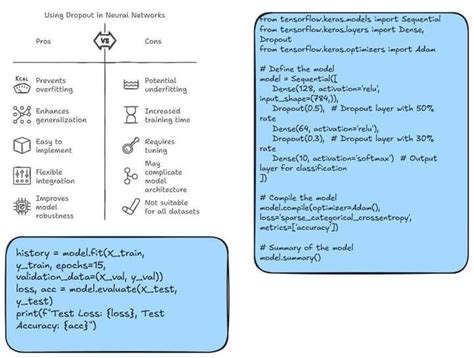 Using Dropout in Neural Networks
Pros
VS
Cons
Prevents
overfitting
Potential
underfitting
Enhances
generalization
Increased
training time
Easy to
implement
Requires
tuning
Flexible
integration
May
complicate
model
architecture
Improves
model
robustness
Not suitable
for all datasets
history = model.fit(x_train,
y_train, epochs=15,
validation_data=(x_val, y_val))
loss, acc = model.evaluate(x_test,
y_test)
print(f"Test Loss: {loss}, Test
Accuracy: {acc}")
from tensorflow.keras.models import Sequential
from tensorflow.keras.layers import Dense,
Dropout
from tensorflow.keras.optimizers import Adam
# Define the model
model = Sequential([
Dense(128, activation='relu',
input_shape=(784,)),
Dropout(0.5), # Dropout layer with 50%
rate
Dense(64, activation='relu'),
Dropout(0.3), # Dropout layer with 30%
rate
Dense(10, activation='softmax') # Output
layer for classification
])
# Compile the model
model.compile(optimizer=Adam(),
loss='sparse_categorical_crossentropy',
metrics=['accuracy'])
# Summary of the model
model.summary()